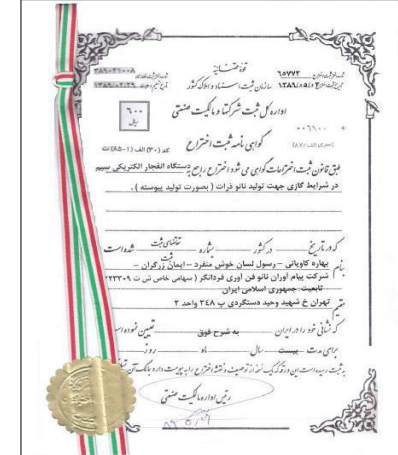 قوهٔ قضائیه
سازمان ثبت اسناد و املاک کشور
شماره ثبت اختراع ۶۵۷۷۲
تاریخ ثبت اختراع ۱۳۸۹/۰۵/۰۲
اداره کل ثبت شرکتها و مالکیت صنعتی
۶۰۰ ریال
۰۰۶۹۰۰
(سری الف/۸۷)
گواهی نامه ثبت اختراع
کد (۳۰) الف (۱-۸۵) ث
طبق قانون ثبت اختراعات گواهی می شود اختراع راجع به دستگاه انفجار الکتریکی سیم
در شرایط گازی جهت تولید نانو ذرات (بصورت تولید پیوسته).
که در تاریخ در کشور بشماره تقاضای ثبت شده است
بنام بهاره کاویانی - رسول لسان خوش منفرد - ایمان زرگران -
شرکت پیام آوران نانو فن آوری فردانگر (سهامی خاص ش ث ۲۲۳۳۰۹
تابعیت: جمهوری اسلامی ایران
مقیم تهران خ شهید وحید دستگردی پ ۲۴۸ واحد ۲
که نشانی خود را در ایران به شرح فوق تعیین نموده است
برای مدت بیست سال ماه روز
به ثبت رسیده است این ورقه که یک نسخه از توصیف و نقشه اختراع را به پیوست دارد به مالک آن
رئیس اداره مالکیت صنعتی